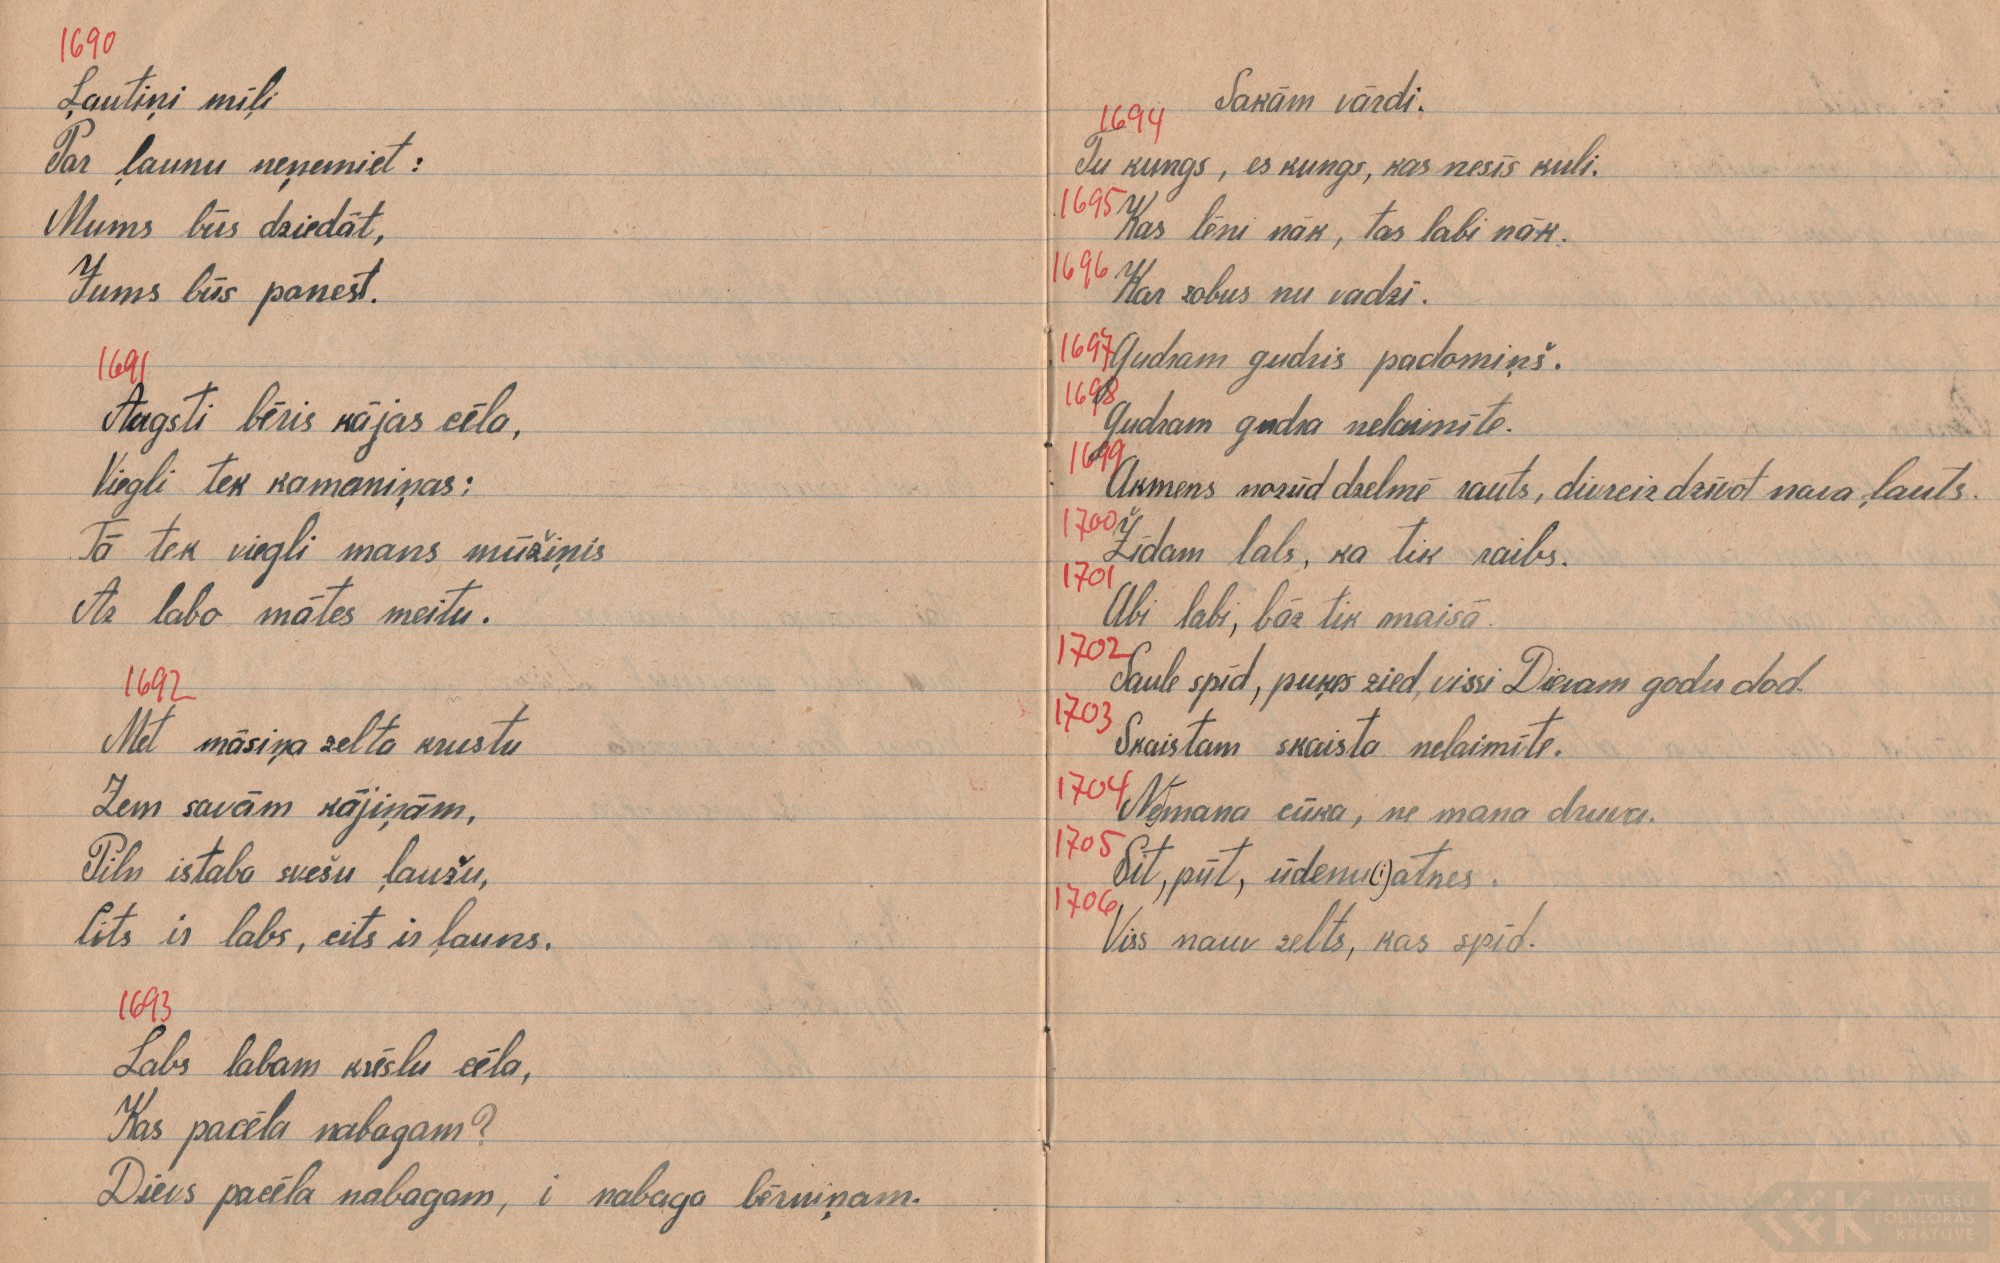 1690
Ļautiņi mīļi
Par ļaunu neņemiet:
Mums būs dziedāt,
Jums būs panest.
1691
Augsti bēris kājas cēla,
Viegli tek kamaniņas:
Tā tek viegli mans mūžiņis
Ar labo mātes meitu.
1692
Met māsiņa zelta krustu
Zem savām kājiņām,
Piln istaba svešu ļaužu,
Cits ir labs, cits ir ļauns.
1693
Labs labam krēslu cēla,
Kas pacēla nabagam?
Dievs pacēla nabagam, i nabaga bērniņam.
Sakām vārdi.
1694
Tu kungs, es kungs, kas nesīs kuli.
1695 Kas lēni nāk, tas labi nāk.
1696 Kar zobus nu vadzi.
1697 Gudram gudris padomiņš.
1698 Gudram gudra nelaimīte.
1699 Akmens nozūd dzelmē rauts, divreiz dzīvot nava ļauts.
1700 Žīdam lals, ka tik raibs.
1701 Abi labi, bāz tik maisā.
1702 Saule spīd, puķes zied, vissi Dievam godu dod.
1703 Skaistam skaista nelaimīte.
1704 Nemana cūka, ne mana druva.
1705 Sit, pūt, ūdenu(i) atnes.
1706 Viss nauv zelts, kas spīd.
LFK LATVIEŠU
FOLKLORAS
KRĀTUVE